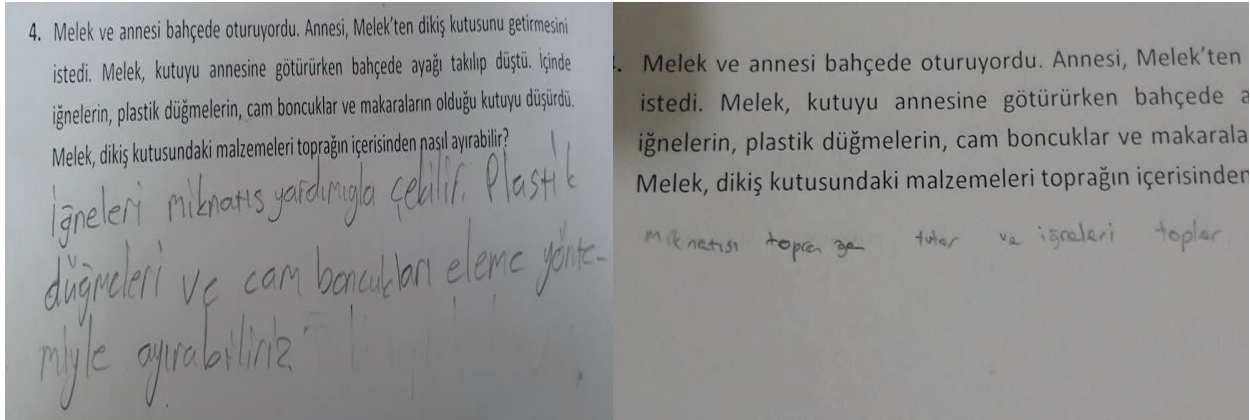 4. Melek ve annesi bahçede oturuyordu. Annesi, Melek'ten dikiş kutusunu getirmesini
istedi. Melek, kutuyu annesine götürürken bahçede ayağı takılıp düştü. İçinde
iğnelerin, plastik düğmelerin, cam boncuklar ve makaraların olduğu kutuyu düşürdü.
Melek, dikiş kutusundaki malzemeleri toprağın içerisinden nasıl ayırabilir?
İğneleri mıknatıs yardımıyla çekilir. Plastik
düğmeleri ve cam boncukları eleme yönte-
miyle ayırabiliriz
. Melek ve annesi bahçede oturuyordu. Annesi, Melek'ten
istedi. Melek, kutuyu annesine götürürken bahçede a
iğnelerin, plastik düğmelerin, cam boncuklar ve makarala
Melek, dikiş kutusundaki malzemeleri toprağın içerisinden
Mıknatısı toprağa tutar ve iğneleri toplar